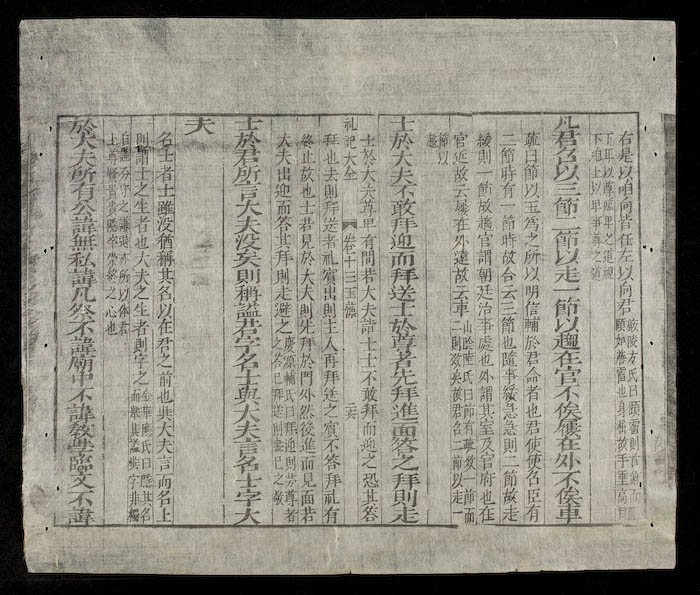 右是以咱向皆任左以向君
嚴陵方氏曰頤霤則首俯而
頤如簷霤也身俯故手垂高
下耳以尊臨卑之道視
下咱上以卑事尊之道
凡君召以三節二節以走一節以趨在官不俟屨在外不俟車
疏曰節以玉為之所以明信輔於君命者也君使使召臣有
二節時有一節時故合云三節也隨事緩急急則二節故走
緩則一節故趨官謂朝廷治事處也外謂其室及官府也在
官近故云屨在外遠故云車
山陰陸氏曰節有
二則致矣故君召二節以走一
節以
趨
士於大夫不敢拜迎而拜送士於尊者先拜進面答之拜則走
士於大夫尊卑有間若大夫詣士士不敢拜而迎之恐其答
禮記大全 卷十三玉藻 二六
拜也去則拜送者禮賓出則主人再拜送之賓不答拜禮有
終止故也士若見於大夫則先拜於門外然後進而見面若
大夫出迎而答其拜則走避之
慶源輔氏曰拜迎則勞尊者
之答已拜送則盡已之敬
士於君所言大夫沒矣則稱謚若字名士與大夫言名士字大
夫
名士者士雖沒猶稱其名以在君之前也與大夫言而名士
則謂士之生者也大夫之生者則字之
金華應氏曰
士尊賢貴貴
於大夫所有公諱無私諱凡祭不諱廟中不諱教學臨文不諱